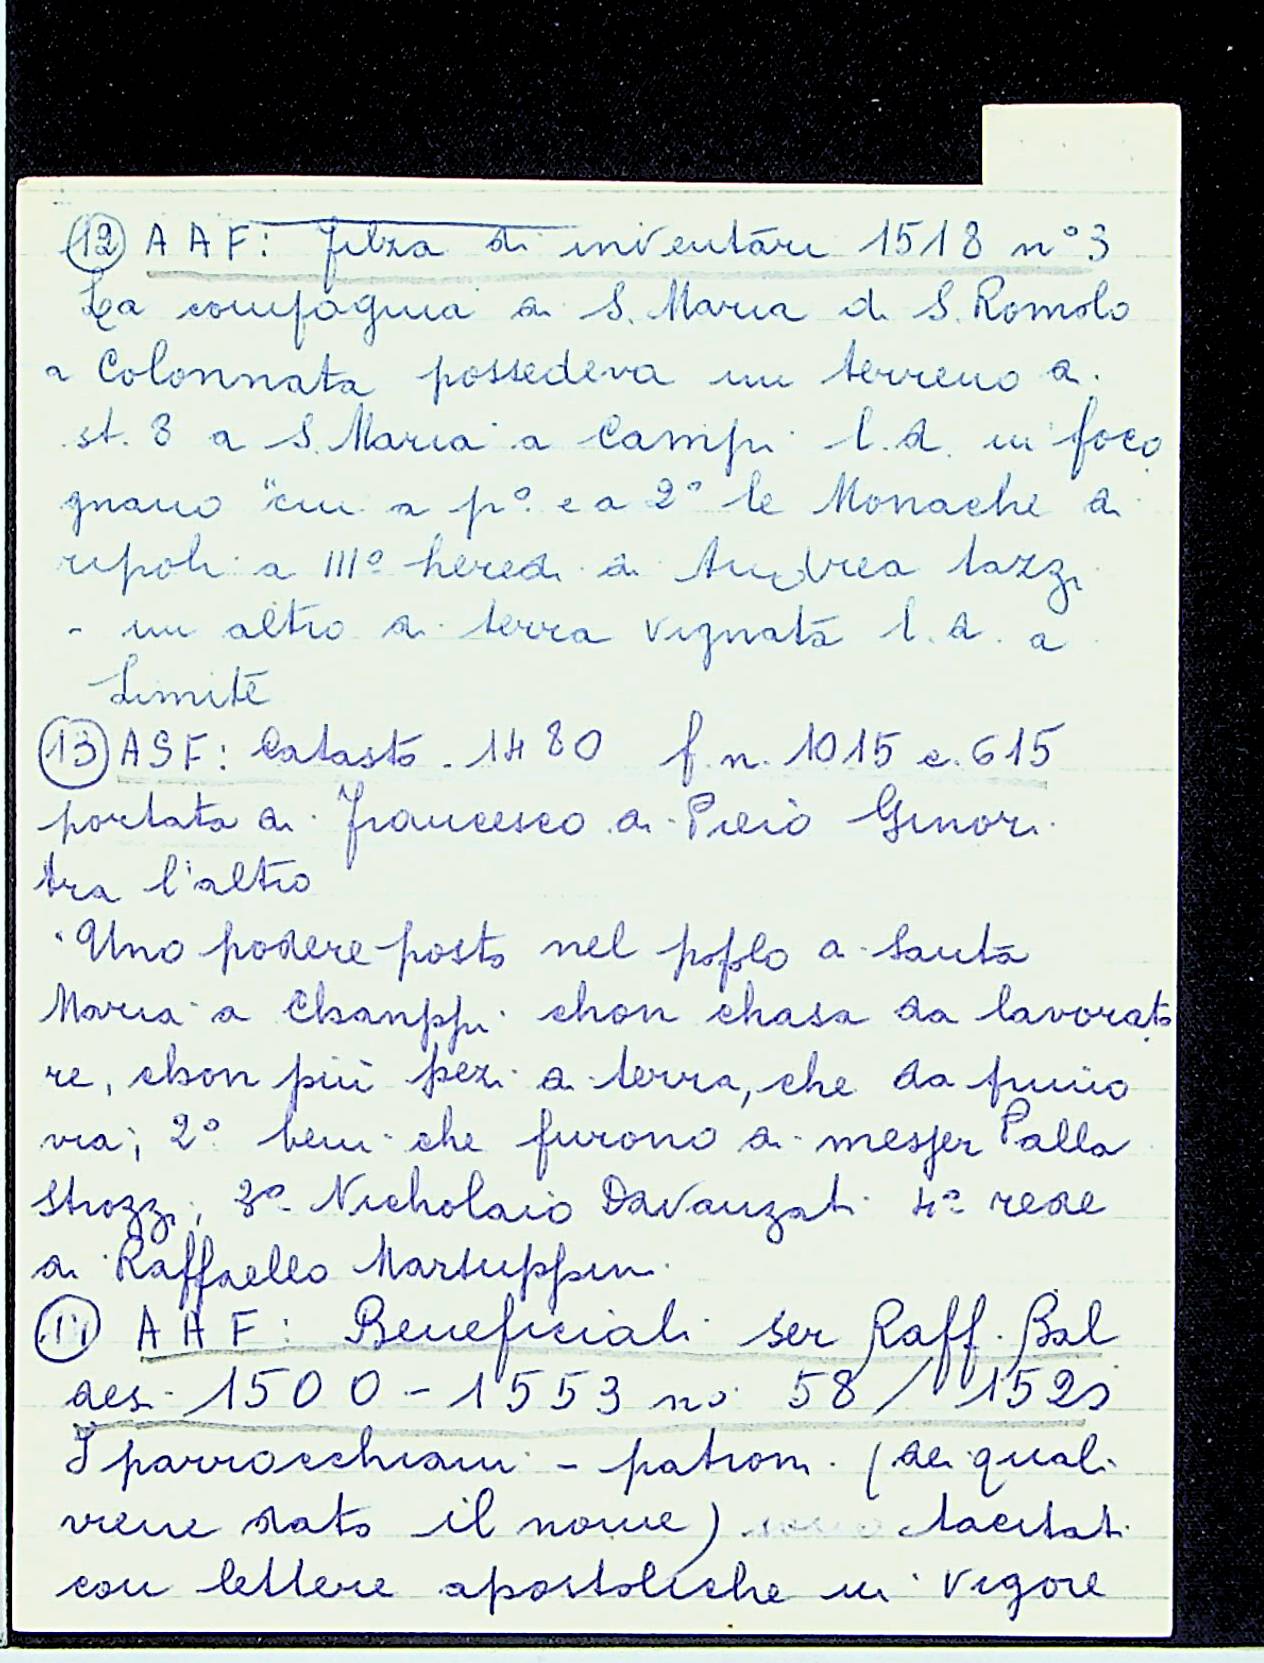 (12) A A F: filza di inventari 1518 n° 3
La compagnia di S. Maria di S. Romolo
a Colonnata possedeva un terreno di
st. 8 a S. Maria a Campi l.d. in foco
gnano "cui a p° e a 2° le Monache di
ripoli a III° heredi di Andrea tazzi
- un altro di terra vignata l.d. a
Limite
(13) A S F: Catasto 1480 f. n. 1015 c. 615
portata di Francesco di Piero Ginori
tra l'altro
"Uno podere posto nel popolo di Santa
Maria a Chanppi chon chasa da lavorato
re, chon più pezi di terra, che da primo
via; 2° beni che furono di messer Palla
Strozzi; 3° Nicholaio Davanzati 4° rede
di Raffaello Martuppini
(14) A A F: Beneficiali ser Raff. Bal
desi 1500 - 1553 no 58 / 1525
I parrocchiani - patroni (dei quali
viene dato il nome) sono tacitati
con lettere apostoliche in vigore